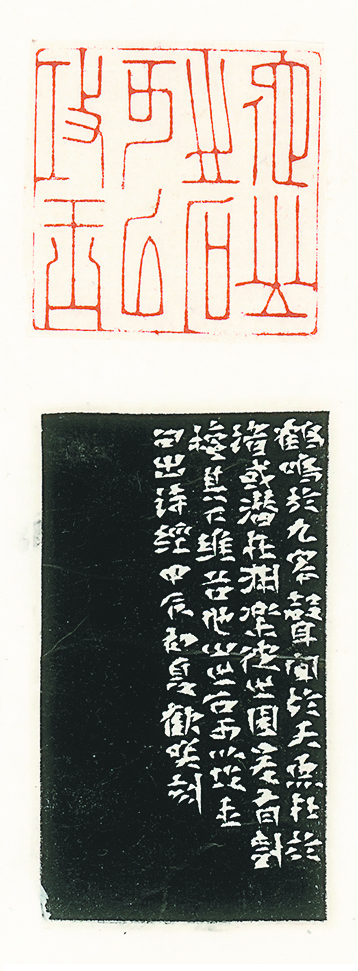 他山
之石
可以
攻玉
鶴鳴於九皋聲聞於天魚在於
渚或潛在淵樂彼之園爰有樹
檀其下維他山之石可以攻玉
句出詩經甲辰初夏歡咲刻